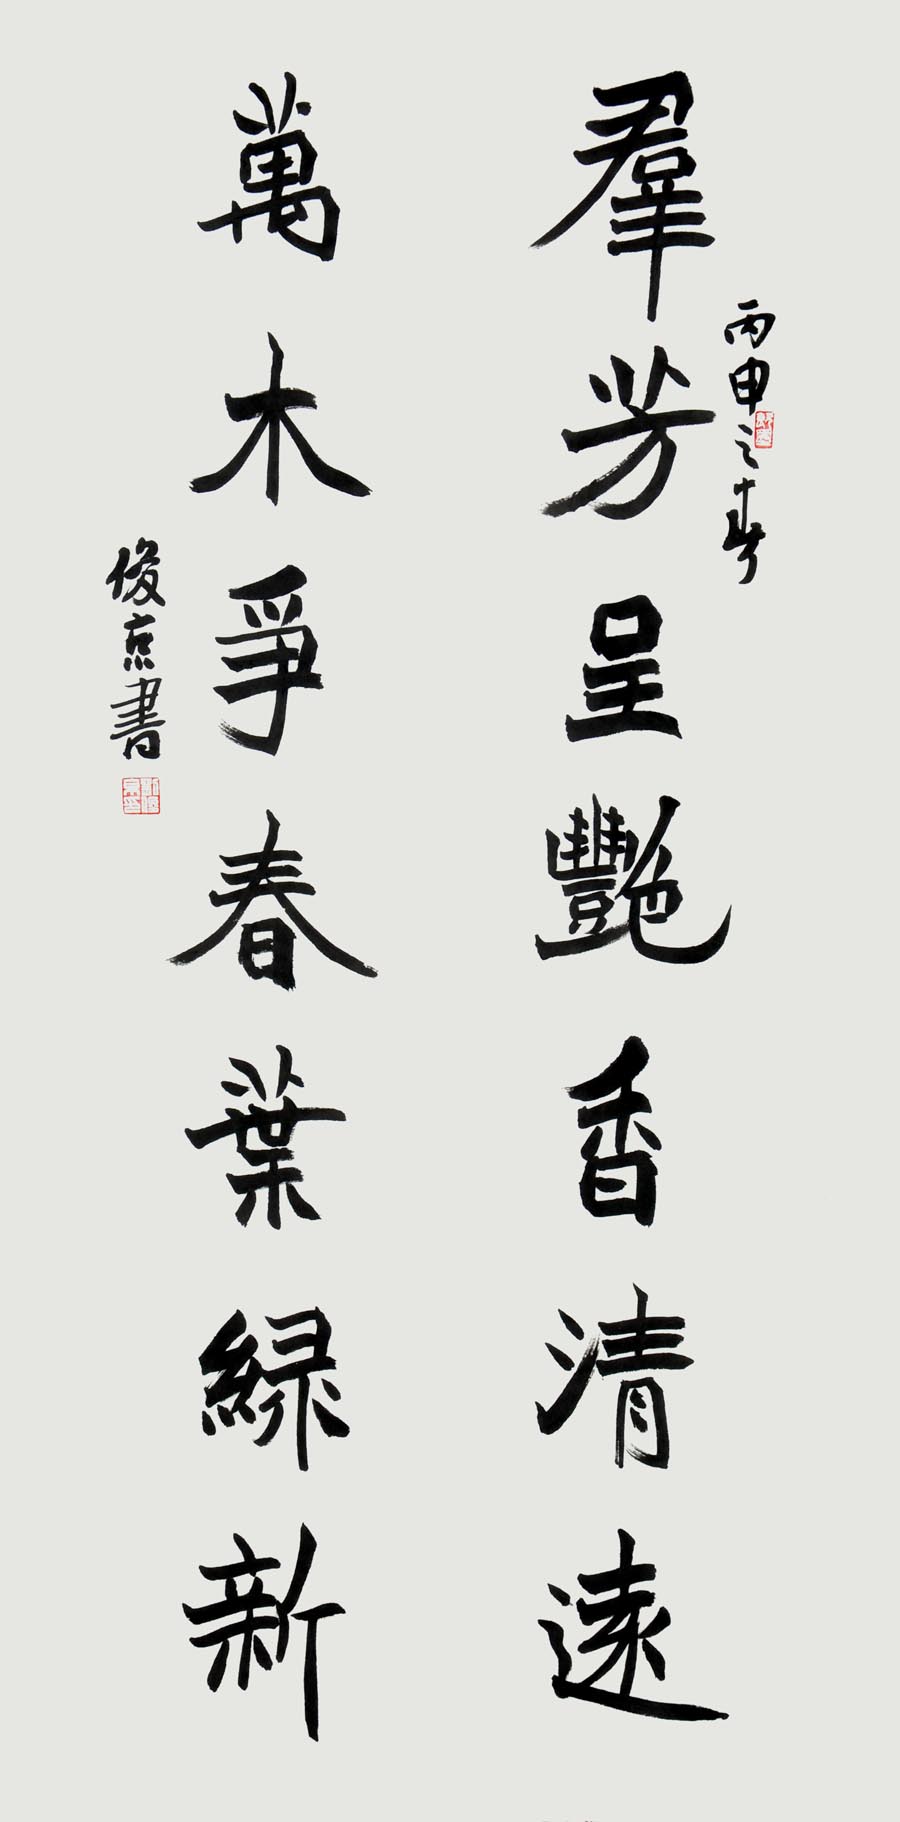 丙申之春
羣芳呈艷香清遠
萬木爭春葉緑新
俊京書